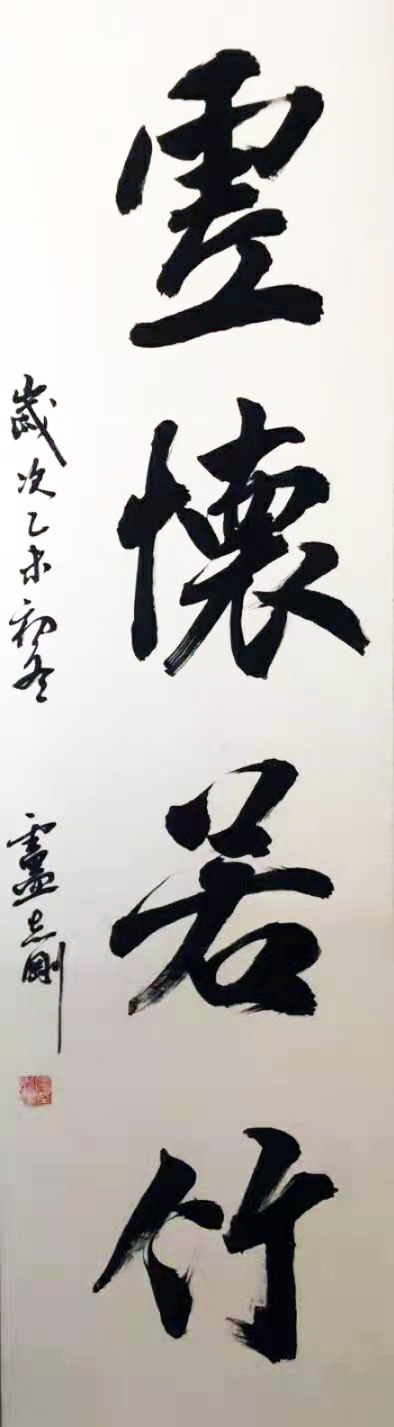 虚懷若竹
歲次乙未初冬 盧志剛